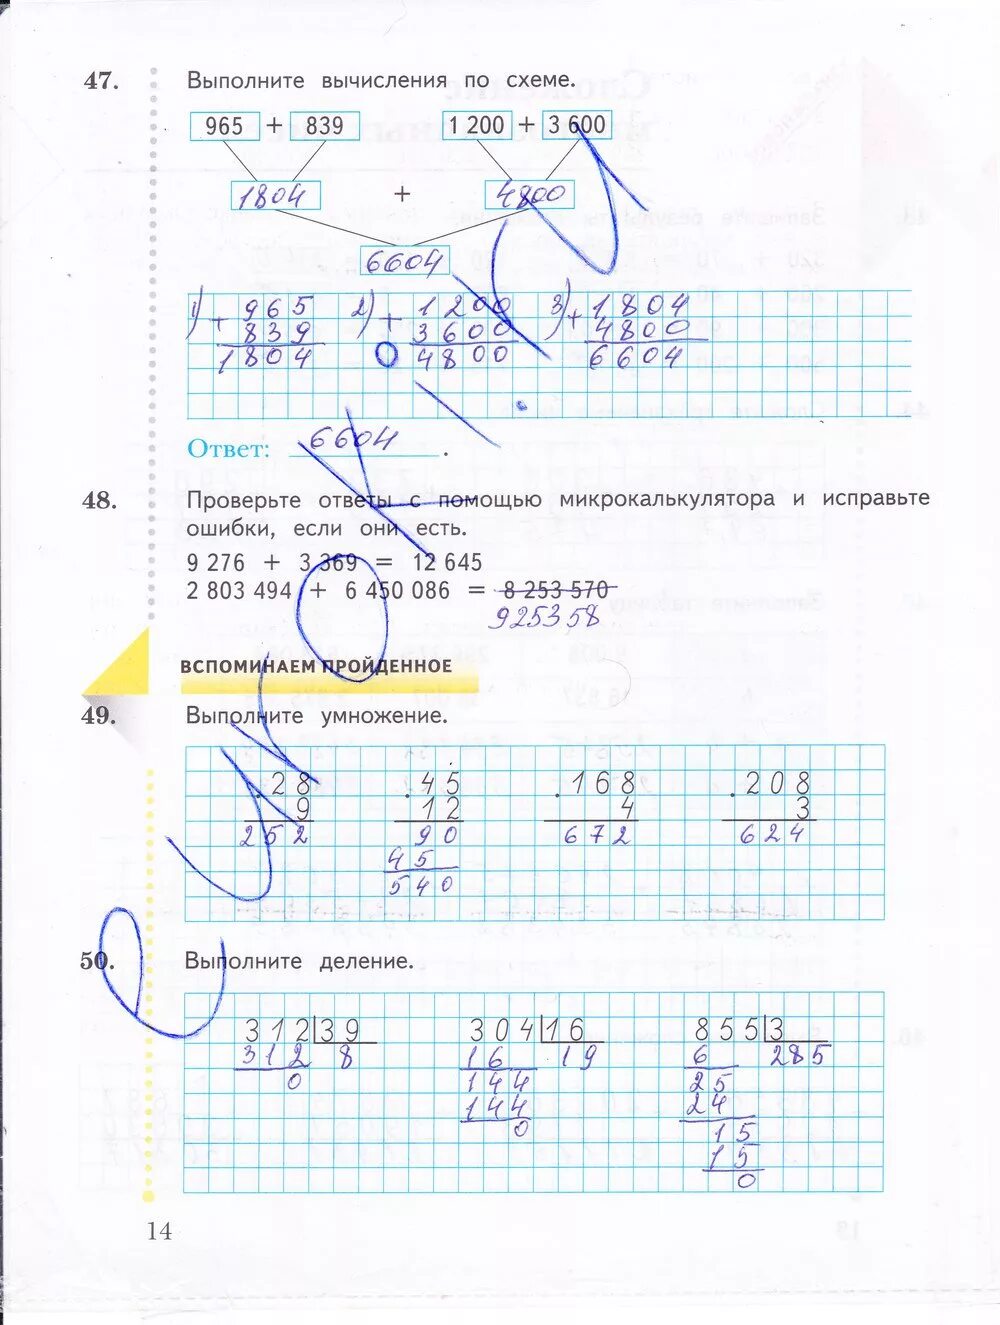 47. Выполните вычисления по схеме.
965 + 839 1 200 + 3 600
1804 + 4800
6604
1) + 965 2) + 1200 3) + 1804
839 3600 4800
1804 4800 6604
Ответ: 6604 .
48. Проверьте ответы с помощью микрокалькулятора и исправьте
ошибки, если они есть.
9 276 + 3 369 = 12 645
2 803 494 + 6 450 086 = 8 253 570
925358
ВСПОМИНАЕМ ПРОЙДЕННОЕ
49. Выполните умножение.
. 28 . 45 . 168 . 208
9 12 4 3
252 90 672 624
45
540
50. Выполните деление.
312 39 304 16 855 3
312 8 16 19 6 285
0 144 25
144 24
0 15
15
0
14